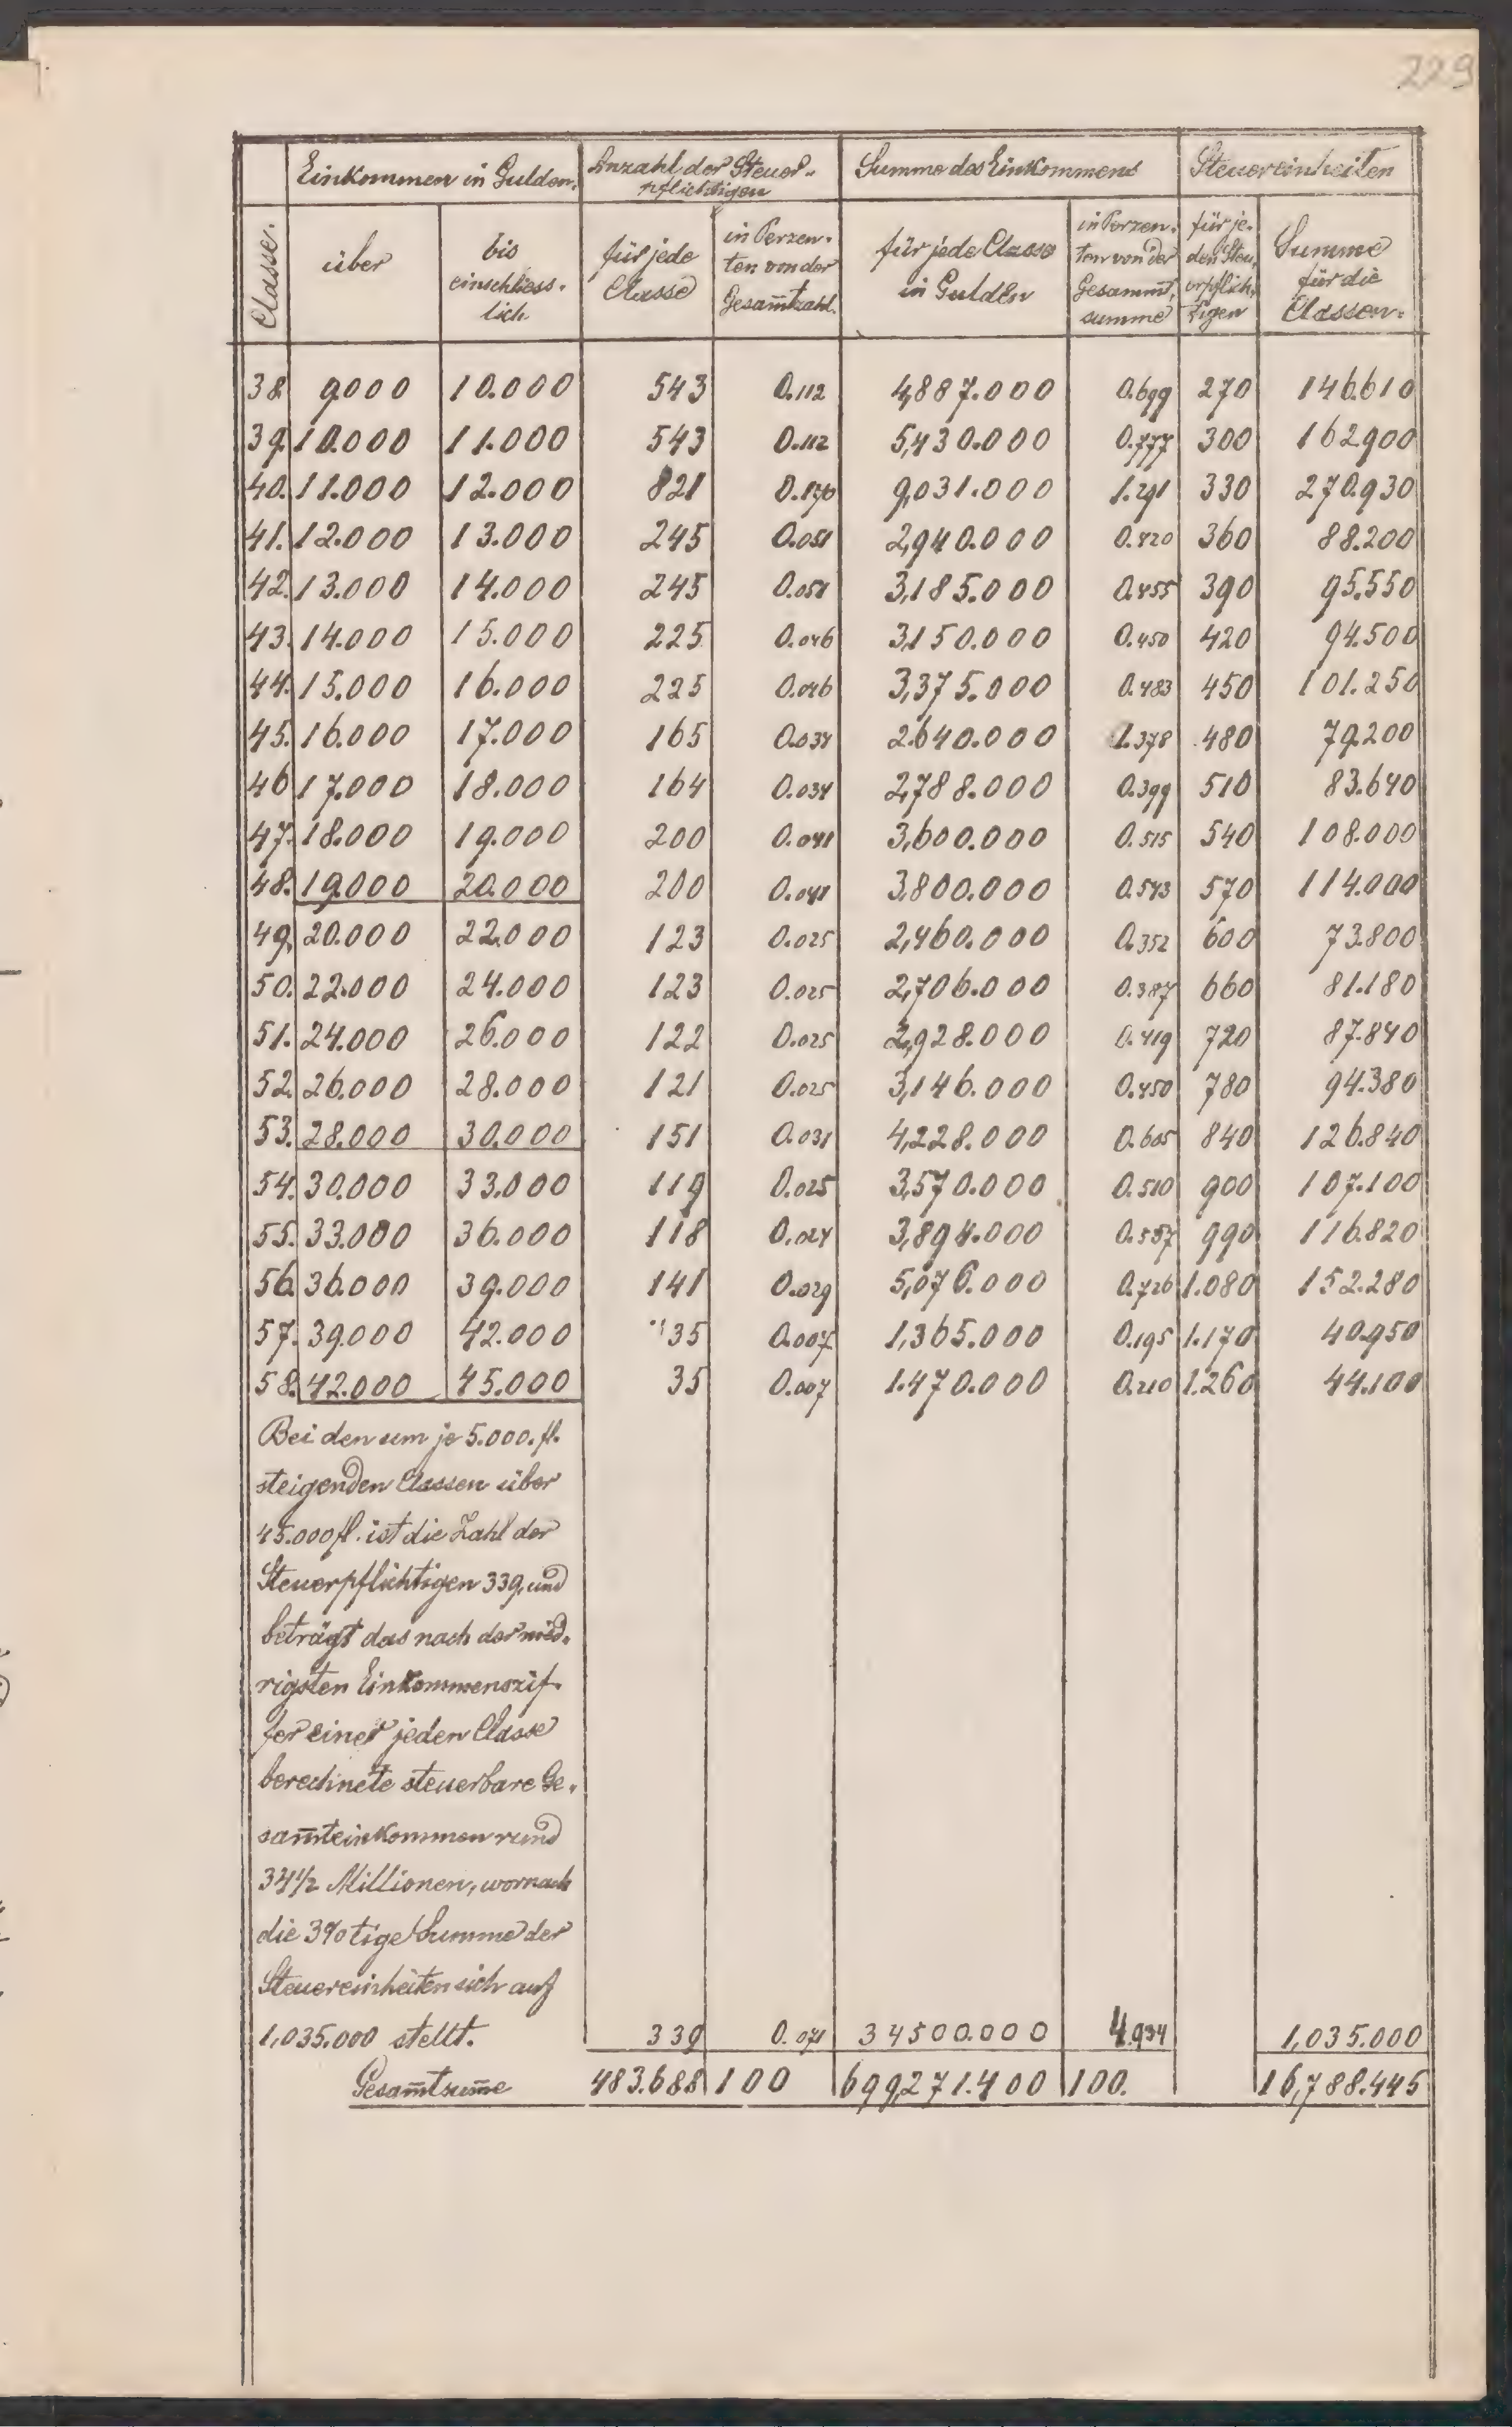 229
Einkommen in Gulden. Anzahl der Steuer- Summe des Einkommens Steuereinheiten
pflichtigen
Classe. über bis einschliess- lich für jede Classe in Perzen- ten von der Gesam̄tzahl. für jede Classe in Gulden in Perzen- ten von der Gesammt- summe für je- den Steu- erpflich- tigen Summe für die Classen.
38. 9000 10.000 543 0.112 4,887.000 0.699 270 146.610
39. 10.000 11.000 543 0.112 5,430.000 0.777 300 162.900
40. 11.000 12.000 821 0.170 9,031.000 1.291 330 270.930
41. 12.000 13.000 245 0.051 2,940.000 0.420 360 88.200
42. 13.000 14.000 245 0.051 3,185.000 0.455 390 95.550
43. 14.000 15.000 225 0.046 3,150.000 0.450 420 94.500
44. 15.000 16.000 225 0.046 3,375.000 0.483 450 101.250
45. 16.000 17.000 165 0.034 2.640.000 1.378 480 79.200
46 17.000 18.000 164 0.034 2,788.000 0.399 510 83.640
47. 18.000 19.000 200 0.041 3,600.000 0.515 540 108.000
48. 19.000 20.000 200 0.041 3,800.000 0.543 570 114.000
49. 20.000 22.000 123 0.025 2,460.000 0.352 600 73.800
50. 22.000 24.000 123 0.025 2,706.000 0.387 660 81.180
51. 24.000 26.000 122 0.025 2,928.000 0.419 720 87.840
52. 26.000 28.000 121 0.025 3,146.000 0.450 780 94.380
53. 28.000 30.000 151 0.031 4,228.000 0.605 840 126.840
54. 30.000 33.000 119 0.025 3,570.000 0.510 900 107.100
55. 33.000 36.000 118 0.024 3,894.000 0.557 990 116.820
56. 36.000 39.000 141 0.029 5,076.000 0.726 1.080 152.280
57. 39.000 42.000 35 0.007 1,365.000 0.195 1.170 40.950
58. 42.000 45.000 35 0.007 1.470.000 0.210 1.260 44.100
Bei den um je 5.000. fl.
steigenden Classen über
45.000 fl. ist die Zahl der
Steuerpflichtigen 339, und
beträgt das nach der nied-
rigsten Einkommenszif-
fer einer jeden Classe
berechnete steuerbare Ge-
sam̄teinkommen rund
34 1/2 Millionen, wornach
die 3%tige Summe der
Steuereinheiten sich auf
1,035.000 stellt. 339 0.071 34500.000 4.934 1,035.000
Gesam̄tsum̄e 483.688 100 699,271.400 100. 16,788.445